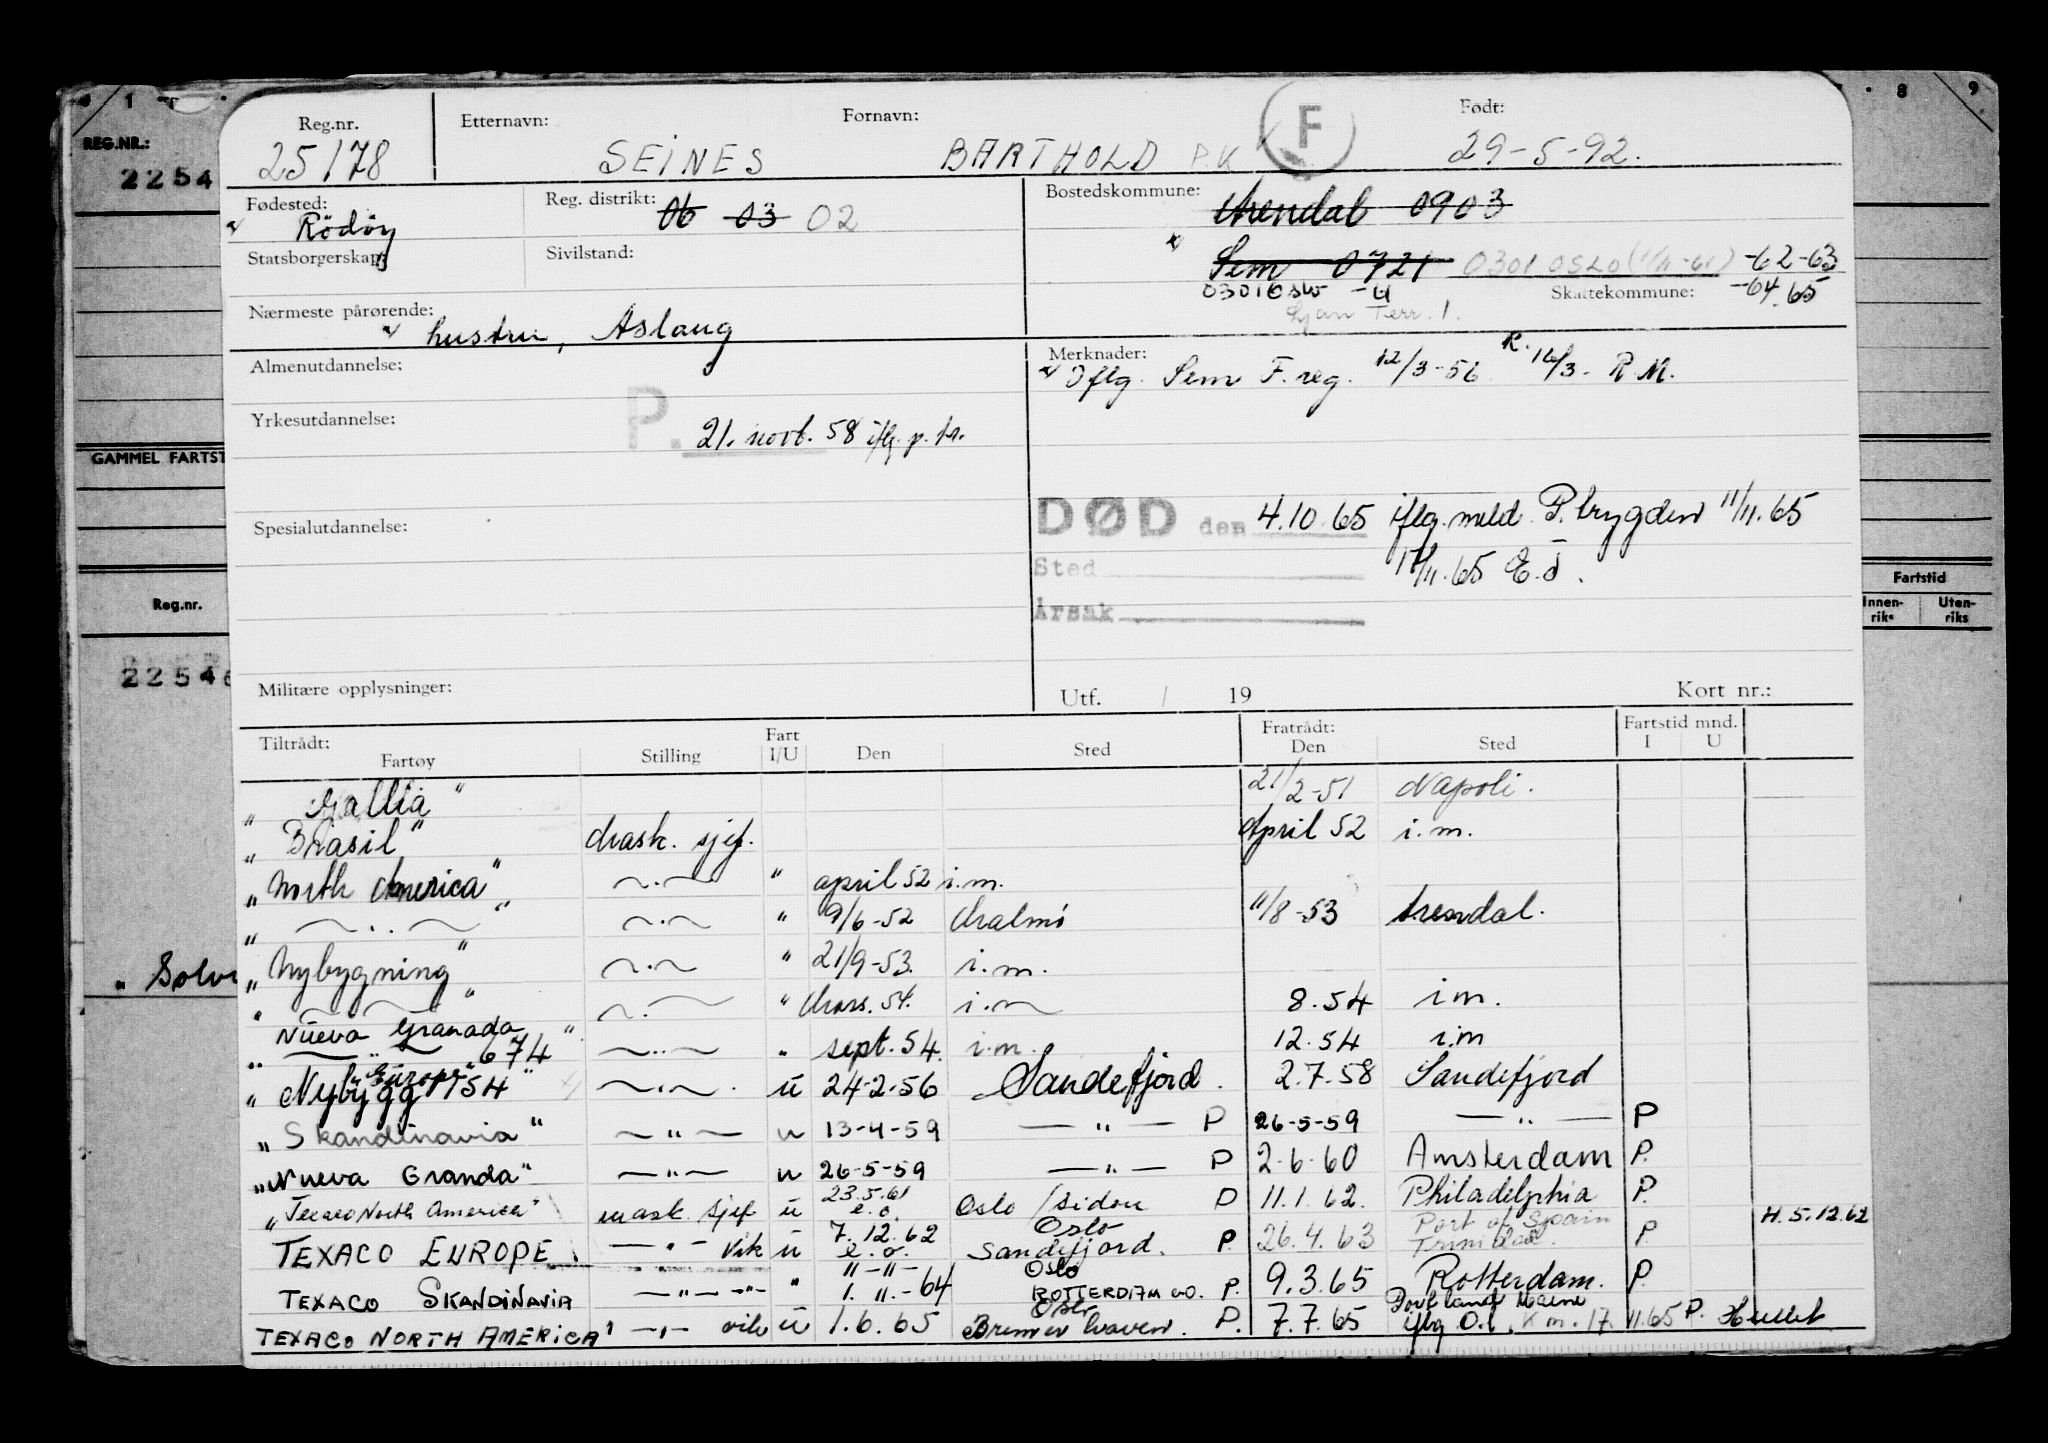 1
8 9
REG.NR.:
2254
GAMMEL FARTST
Reg.nr.
2254
"Solv
Fartstid
Innen-riks Uten-riks
Reg.nr. 25178
Etternavn: SEINES
Fornavn: BARTHOLD P.K
F
Født: 29-5-92.
Fødested: Rödöy
Reg. distrikt: 06 03 02
Bostedskommune: Arendal 0903
Sem 0721 0301 OSLO (1/11-61) -62-63
0301 Oslo -64.65
Statsborgerskap:
Sivilstand:
Skattekommune:
Ljan Terr. 1.
Nærmeste pårørende: hustru, Aslaug
Almenutdannelse:
Merknader: Iflg. Sem F. reg. 12/3-56 R. 16/3- R.M.
Yrkesutdannelse:
P. 21. novb. 58 iflg. p. tr.
DØD den 4.10.65 iflg. meld. P. trygden 11/11.65
Sted
17/11.65 E.J.
Årsak
Spesialutdannelse:
Militære opplysninger:
Utf. / 19
Kort nr.:
Tiltrådt: Fartøy Stilling Fart I/U Den Sted Fratrådt: Den Sted Fartstid mnd. I U
" Gallia " 21/2-51 Napoli.
" Brasil " Mask. sjef. April 52 i.m.
" North America " ~.~ " april 52 i.m.
" ~ . . ~ " ~.~ " 9/6-52 Malmö 11/8-53 Arendal.
" Nybygning " ~.~ " 21/9-53. i.m.
" ~ ~ " ~.~ " Mars. 54. i.m 8.54 i.m.
Nueva Granada
" — " — 674 " ~..~ " sept. 54. i.m. 12.54 i.m
"Europe"
" Nybygg 154 " ~.~. u 24-2-56 Sandefjord. 2.7.58 Sandefjord
" Skandinavia " ~"~ u 13-4-59 — " — P 26-5-59 — " — P
" Nueva Granda " —"— u 26-5-59 — " — P 2-6-60 Amsterdam P.
" Texaco North America " mask. sjef u 23.5.61 e.o. Oslo /Sidon P 11.1.62. Philadelphia P.
TEXACO EUROPE —"— vik u 7.12.62 e.o. Oslo Sandefjord. P. 26.4.63 Port of Spain Trinidad. P H. 5.12.62
TEXACO SKANDINAVIA —"— —"— " "-"- 1.11.-64 Oslo ROTTERDAM e.o. P. 9.3.65 Rotterdam. P.
TEXACO NORTH AMERICA " —"— vik u 1.6.65 Oslo Bremerhaven. P. 7.7.65 Portland Maine iflg. O.l. Km. 17.11.65 P. Hullet